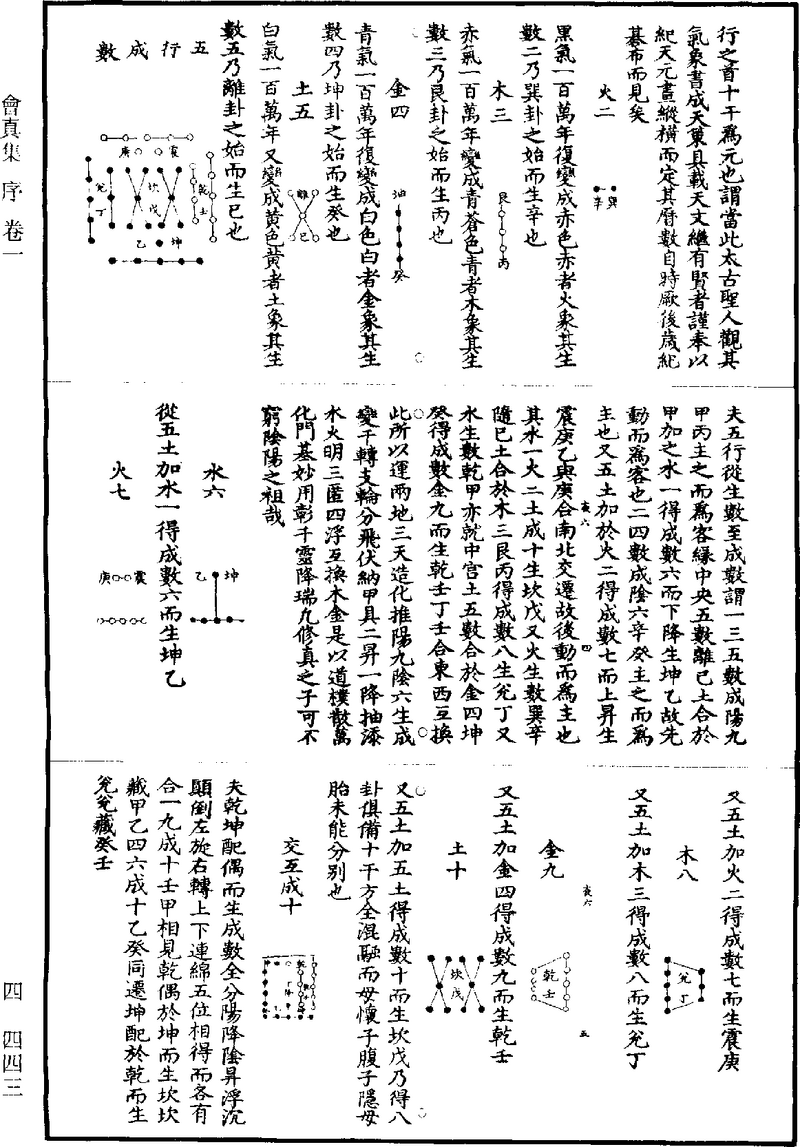 行之首十干為元也謂當此太古聖人觀其
氣象書成天篆具載天文繼有賢者謹奉以
紀天元晝縱橫而定其曆數自時厥後歲紀
棊布而見矣
火二
巽
辛
黑氣一百萬年復變成赤色赤者火象其生
數二乃巽卦之始而生辛也
木三
艮
丙
赤氣一百萬年變成青蒼色青者木象其生
數三乃艮卦之始而生丙也
金四
坤
癸
青氣一百萬年復變成白色白者金象其生
數四乃坤卦之始而生癸也
土五
離
己
白氣一百萬年又變成黃色黃者土象其生
數五乃離卦之始而生已也
五行成數
震
庚
乾
壬
坎
戊
兌
丁
坤
乙
夫五行從生數至成數謂一三五數成陽九
甲丙主之而為客緣中央五數離己土合於
甲加之水一得成數六而下降生坤乙故先
動而為客也二四數成陰六辛癸主之而為
主也又五土加於火二得成數七而上昇生
震庚乙與庚合南北交遷故後動而為主也
其水一火二土成十生坎戊又火生數巽辛
隨已土合於木三艮丙得成數八生兌丁又
水生數乾甲亦就中宮土五數合於金四坤
癸得成數金九而生乾壬丁壬合東西互換
此所以運兩地三天造化推陽九陰六生成
變干轉支輪分飛伏納甲具二昇一降抽添
水火明三匿四浮互換木金是以道樸散萬
化門基妙用彰千靈降瑞凡修真之子可不
窮陰陽之祖哉
水六
坤
乙
從五土加水一得成數六而生坤乙
火七
震
庚
又五土加火二得成數七而生震庚
木八
兌
丁
又五土加木三得成數八而生兌丁
金九
乾
壬
又五土加金四得成數九而生乾壬
土十
坎
戊
又五土加五土得成數十而生坎戊乃得八
卦俱備十干方全混融而母懷子腹子隱母
胎未能分別也
交互成十
夫乾坤配偶而生成數全分陽降陰昇浮沉
顛倒左旋右轉上下連綿五位相得而各有
合一九成十壬甲相見乾偶於坤而生坎坎
藏甲乙四六成十乙癸同遷坤配於乾而生
兌兌藏癸壬
會真集 序 卷一
四 四四三